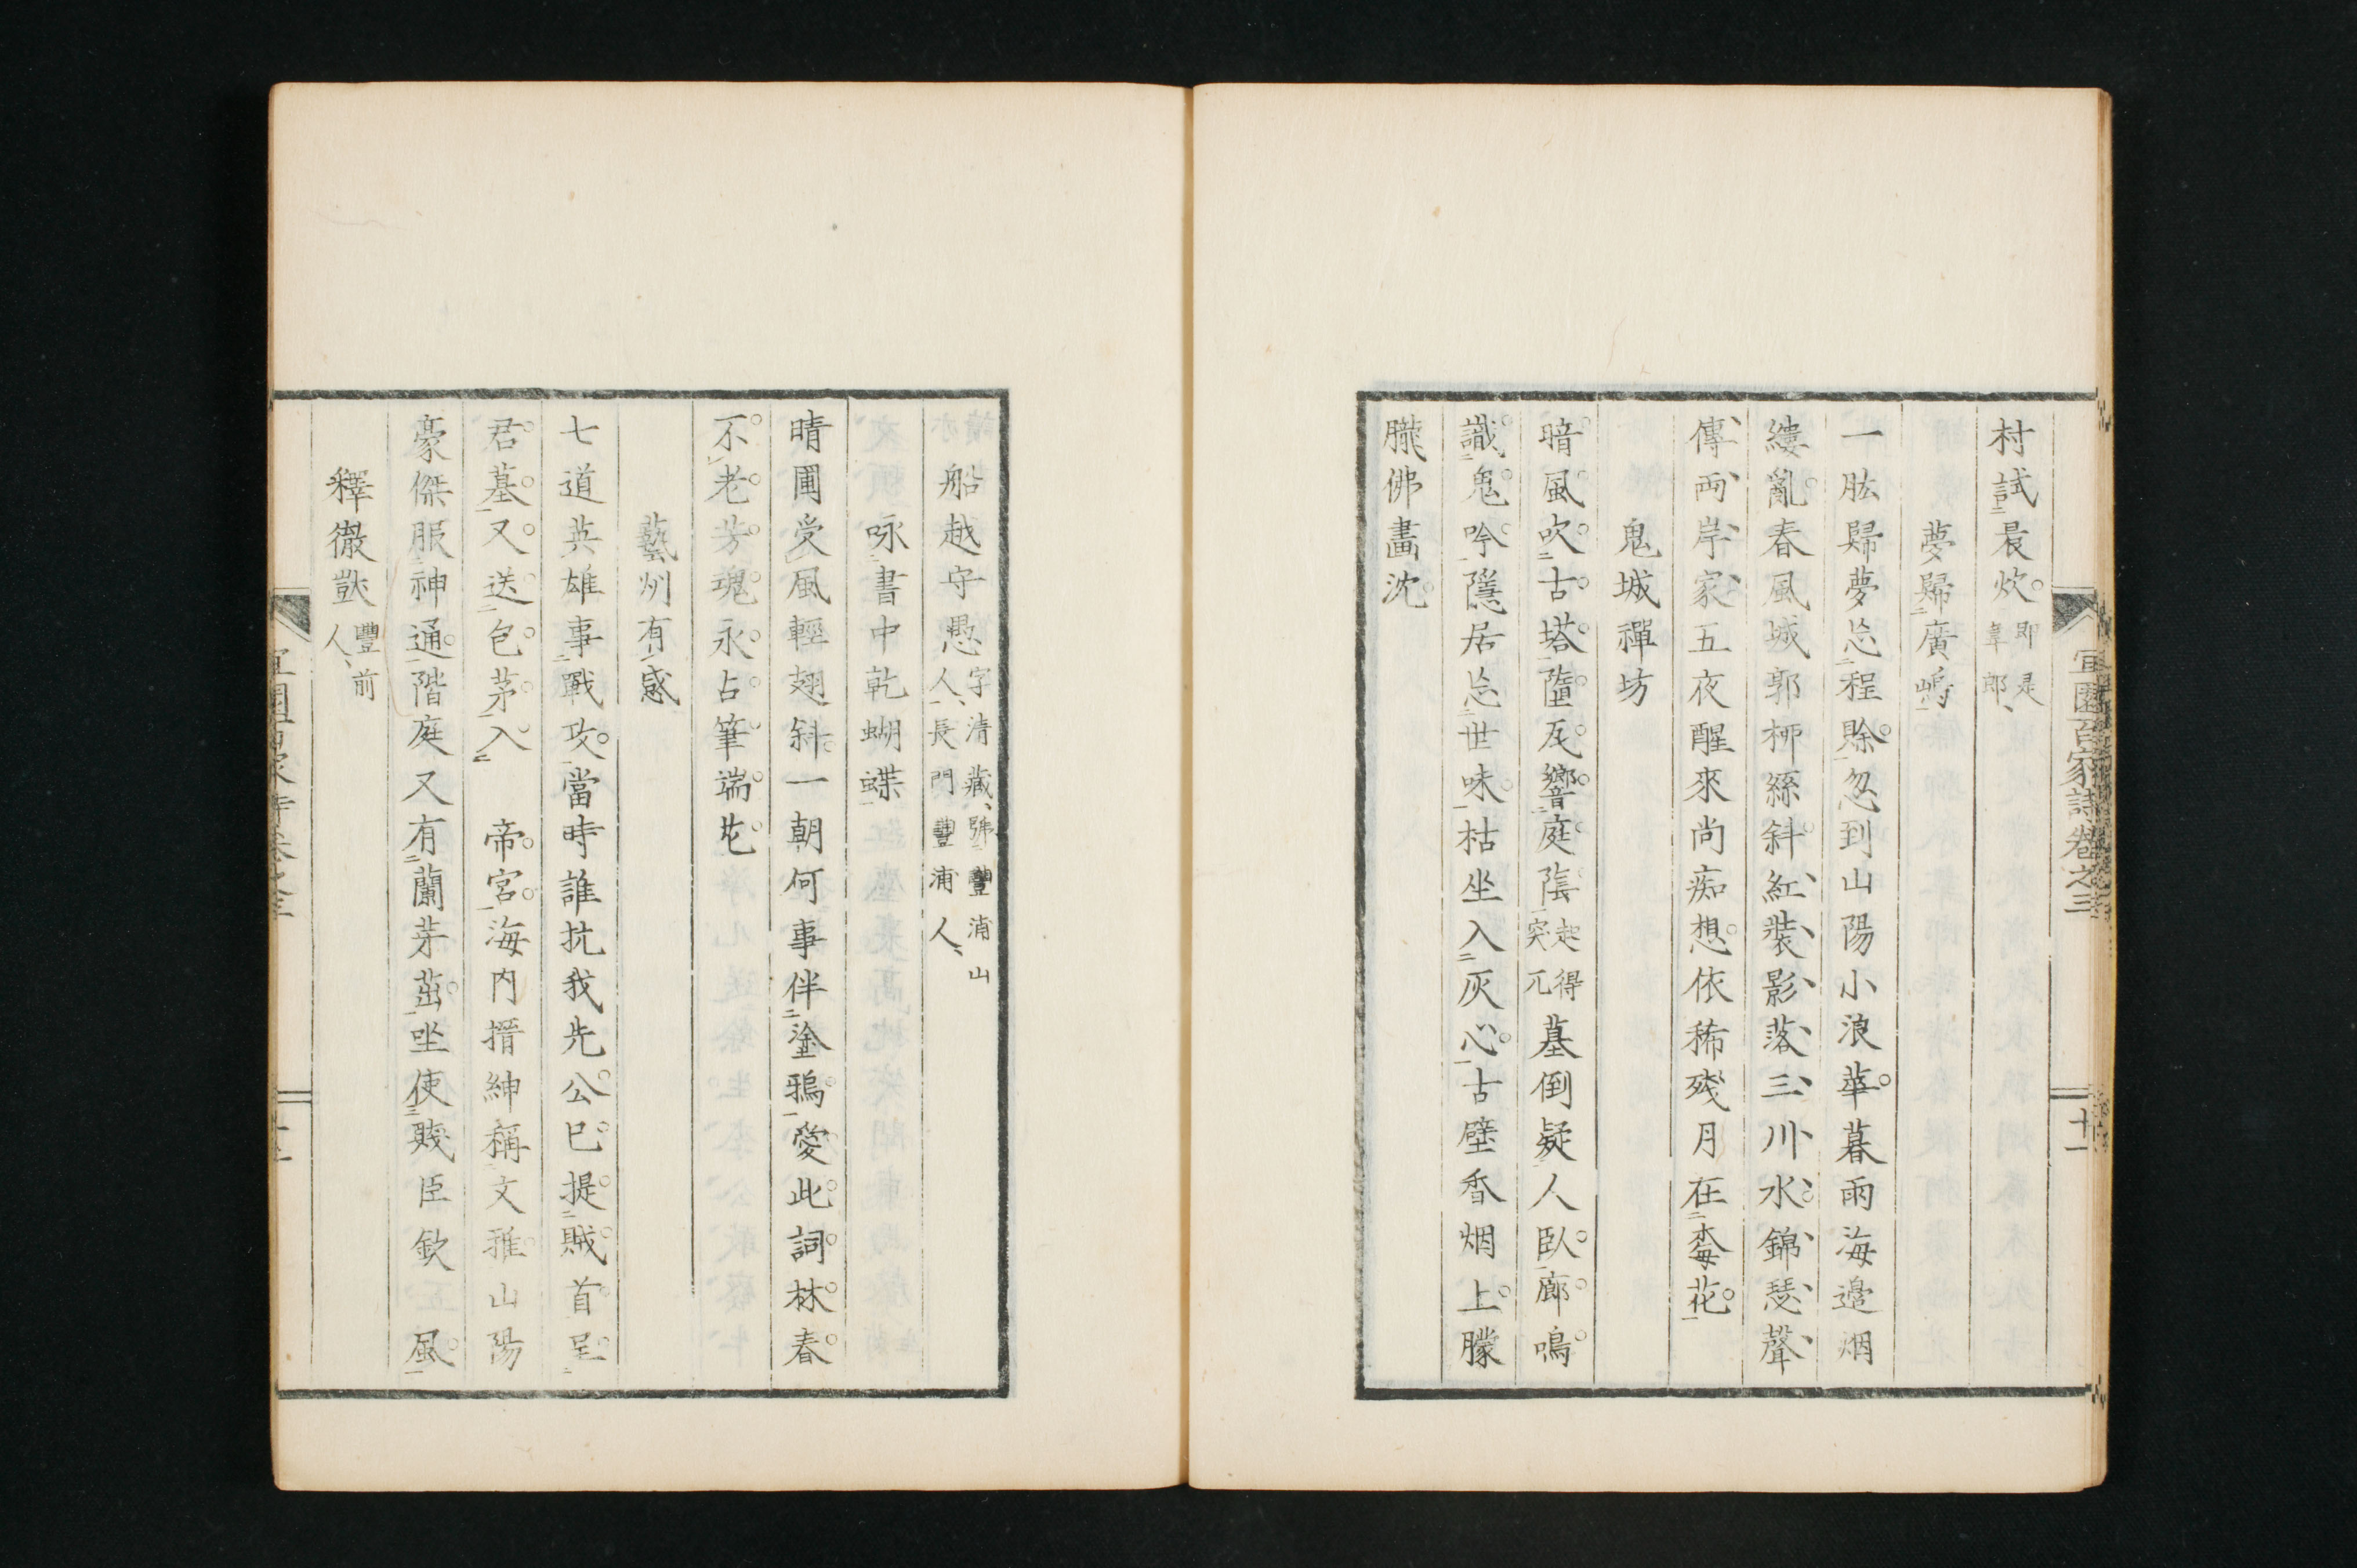 宜園百家詩卷之三
十一
村試晨炊。即是韋郎、
夢歸廣嶹
一肱歸夢忘程賒。忽到山陽小浪華。暮雨海邊烟
縷亂。春風城郭柳絲斜。紅裝影落三川水。錦瑟聲
傳兩岸家。五夜醒來尚痴想。依稀殘月在梅花。
鬼城禪坊
暗風吹古塔。墮瓦響庭陰。起得突兀墓倒疑人臥。廊鳴
識鬼吟。隱居忘世味。枯坐入灰心。古壁香烟上。朦
朧佛畫沈。
船越守愚字清藏、號豐浦山人、長門豐浦人、
咏書中乾蝴蝶
晴圃受風輕翅斜。一朝何事伴塗鴉。愛此詞林春
不老。芳魂永占筆端花。
藝州有感
七道英雄事戰攻。當時誰抗我先公。已提賊首呈
君墓。又送包茅入　帝宮。海內搢紳稱文雅。山陽
豪傑服神通。階庭又有蘭芽茁。坐使賤臣欽　風。
釋徹獃豐前人、